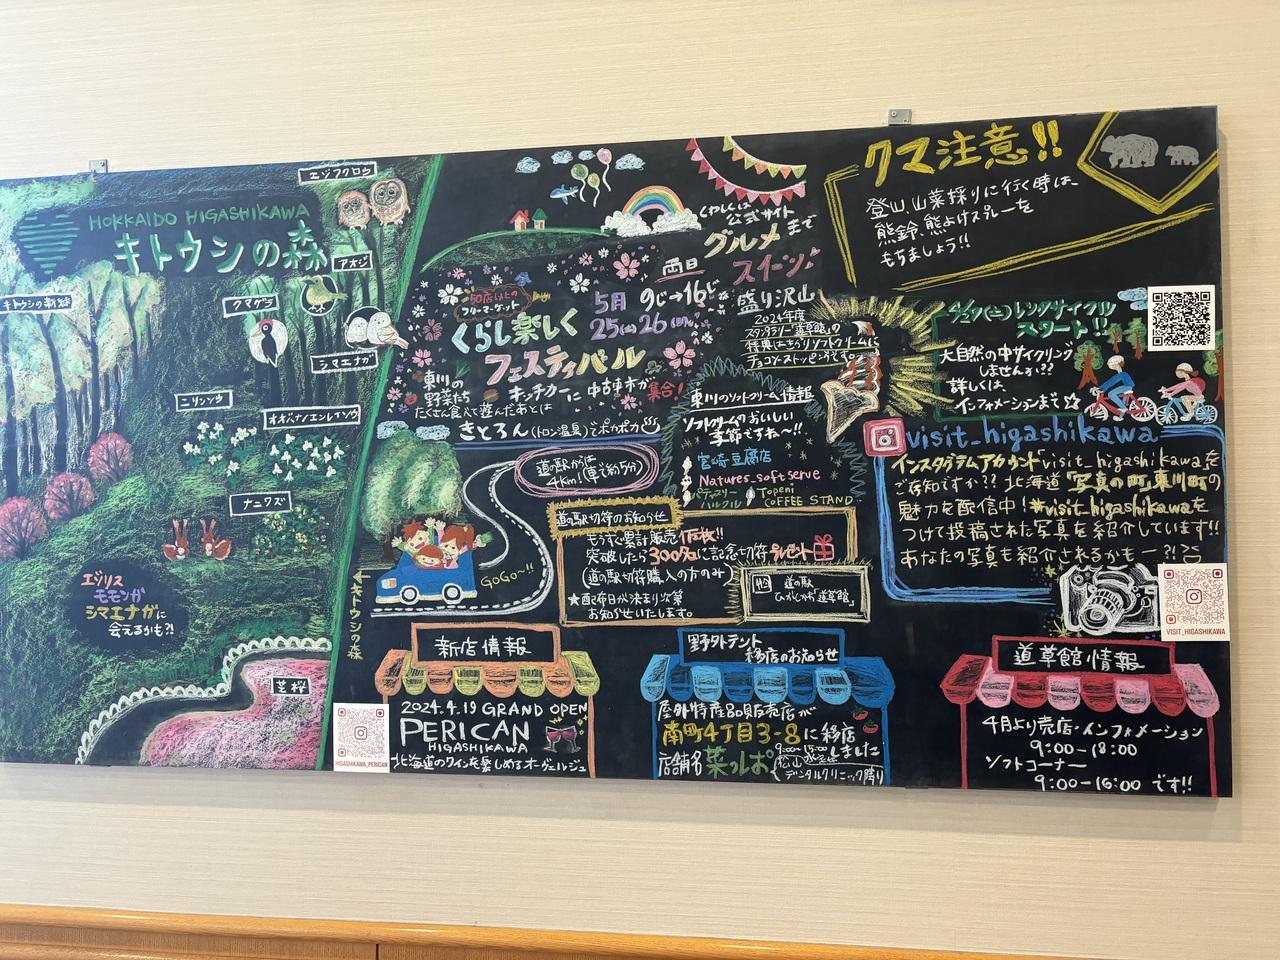 HOKKAIDO HIGASHIKAWA
キトウシの森
キトウシの新緑
エゾフクロウ
アオジ
クマゲラ
シマエナガ
ニリンソウ
オオバナノエンレイソウ
ナニワズ
エゾリス
モモンガ
シマエナガに
会えるかも?!
芝桜
←キトウシの森
50店以上の
フリーマーケット
くらし楽しく
フェスティバル
両日
5月
25(土)26(日)
9じ→16じ
くわしくは
公式サイト
まで
グルメ
スイーツ
盛り沢山
東川の
野菜たち
キッチンカーに中古車市が
集合!
たくさん食べて遊んだあとは
きとろん(トロン温泉)でポカポカ
道の駅からは
4km!(車で約5分)
GOGO~!!
2024年度
スタンプラリー「道草館」の
特典はきらりソフトクリームに
チョコorトッピングです。
東川のソフトクリーム情報
ソフトクリームのおいしい
季節ですね~!!
宮崎豆腐店
Natures_soft serve
パティスリー
ハルクル
Topeni
COFFEE STAND
道の駅切符のお知らせ
もうすぐ累計販売1万枚!!
突破したら300名に記念切符プレゼント
(道の駅切符購入の方のみ)
★配布日が決まり次第
お知らせいたします。
道の駅
ひがしかわ「道草館」
クマ注意!!
登山、山菜採りに行く時は、
熊鈴、熊よけスプレーを
もちましょう!!
4/27(土)レンタサイクル
スタート!!
大自然の中サイクリング
しませんか??
詳しくは、
インフォメーションまで☆
visit_higashikawa
インスタグラムアカウント「visit_higashikawaを
ご存知ですか?? 北海道「写真の町」東川町の
魅力を配信中!#visit_higashikawaを
つけて投稿された写真を紹介しています!!
あなたの写真も紹介されるかもー?!
VISIT_HIGASHIKAWA
新店情報
2024.4.19 GRAND OPEN
PERICAN
HIGASHIKAWA
北海道のワインを楽しめるオーベルジュ
HIGASHIKAWA_PERICAN
野外テント
移店のお知らせ
屋外特産品販売店が
南町4丁目3-8に移店
しました
店舗名 菜っぱ
9:00-15:00
デンタルクリニック隣り
道草館情報
4月より売店・インフォメーション
9:00-18:00
ソフトコーナー
9:00-16:00です!!